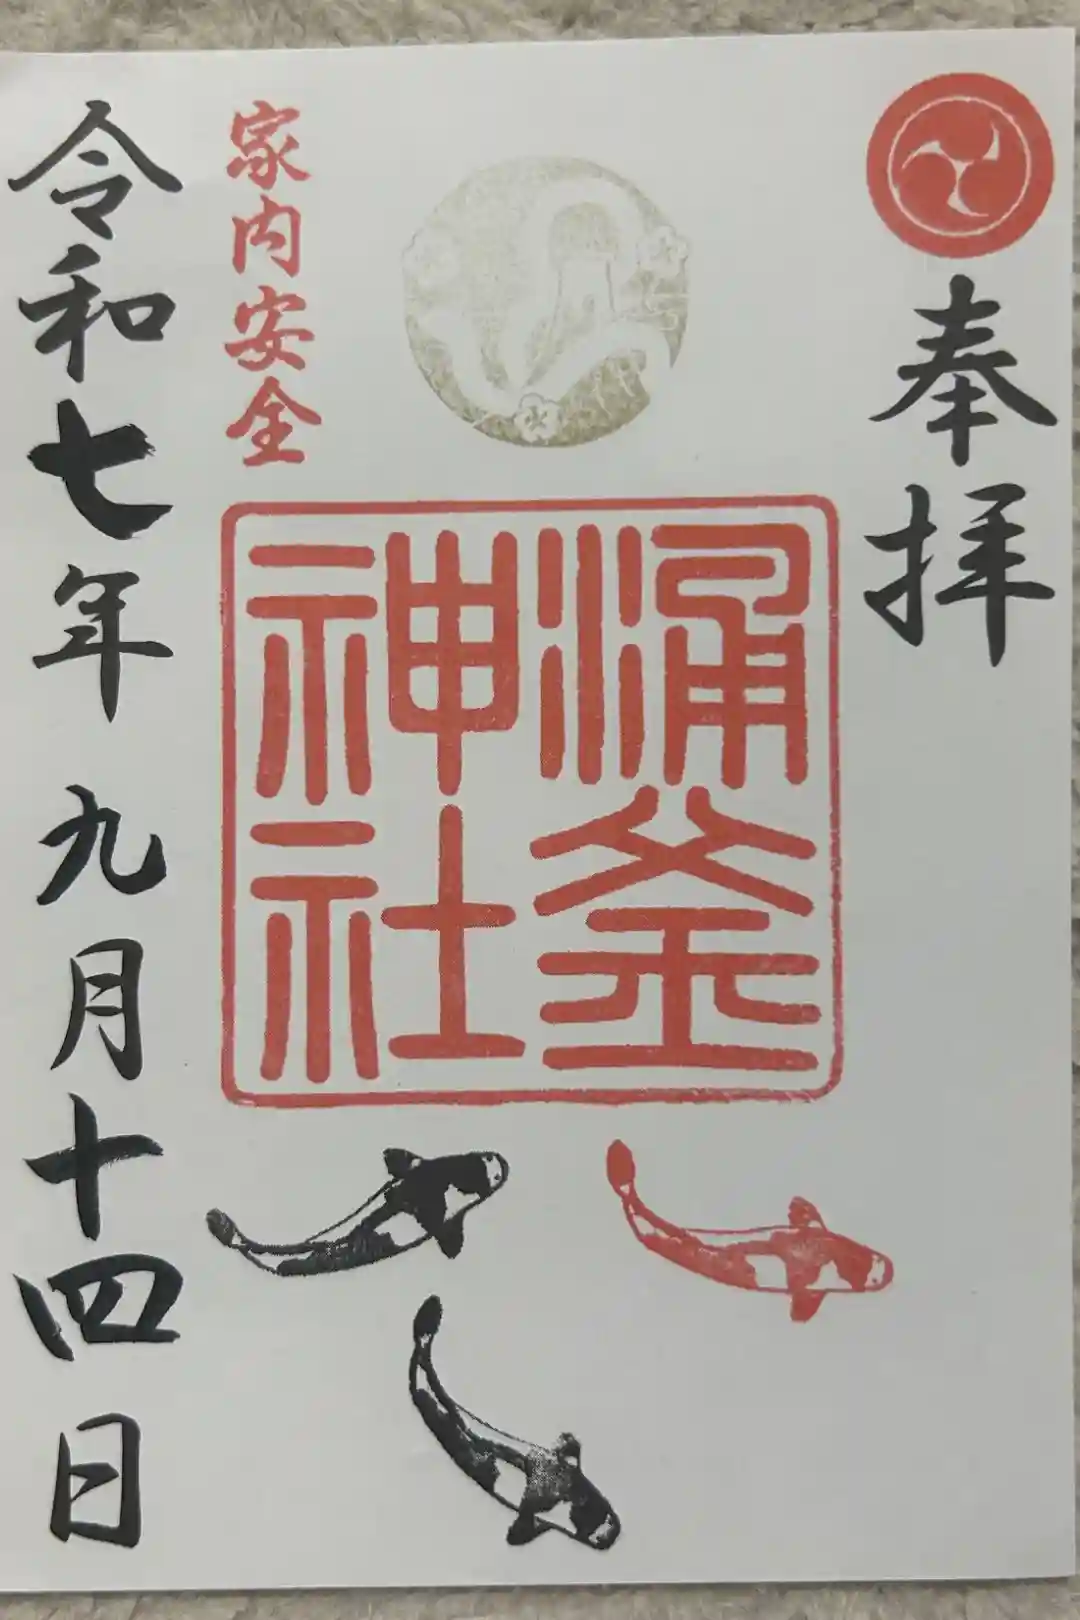 奉拝
涌釜
神社
家内安全
令和七年九月十四日